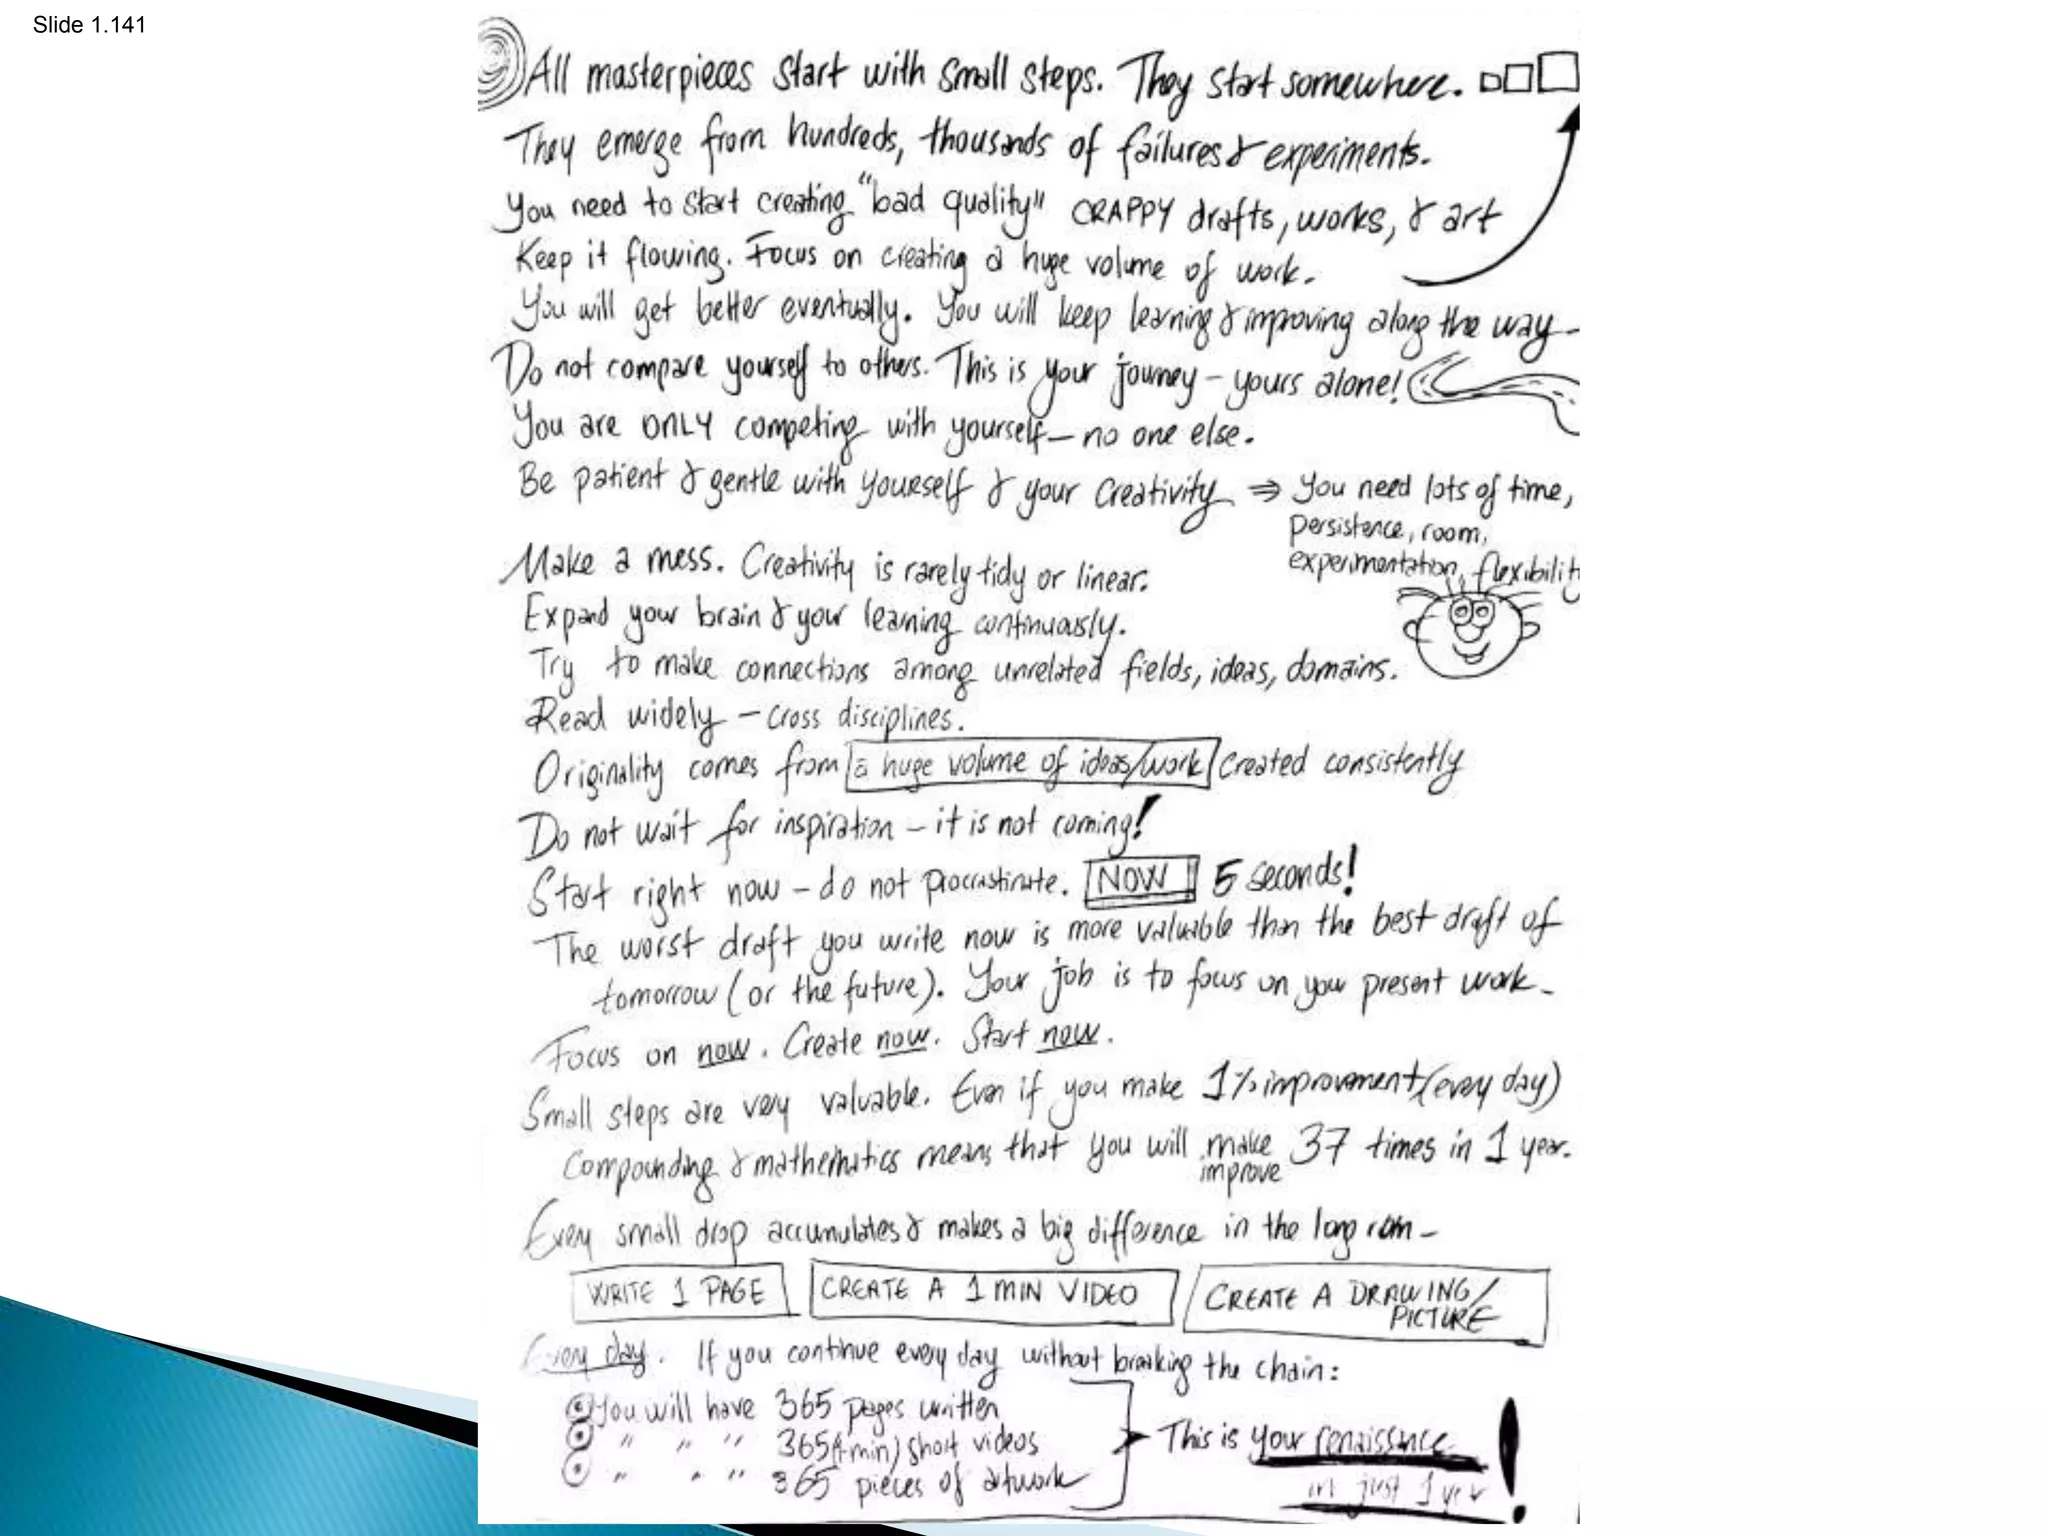 Slide 1.141
All masterpieces start with small steps. They start somewhere.
They emerge from hundreds, thousands of failures & experiments.
You need to start creating "bad quality" CRAPPY drafts, works, & art
Keep it flowing. Focus on creating a huge volume of work.
You will get better eventually. You will keep learning & improving along the way-
Do not compare yourself to others. This is your journey - yours alone!
You are ONLY competing with yourself - no one else.
Be patient & gentle with yourself & your creativity ⇒ You need lots of time,
persistence, room,
experimentation, flexibility
Make a mess. Creativity is rarely tidy or linear.
Expand your brain & your learning continuously.
Try to make connections among unrelated fields, ideas, domains.
Read widely - cross disciplines.
Originality comes from a huge volume of ideas/work created consistently
Do not wait for inspiration - it is not coming!
Start right now - do not procrastinate. NOW 5 seconds!
The worst draft you write now is more valuable than the best draft of
tomorrow (or the future). Your job is to focus on your present work-
Focus on now. Create now. Start now.
Small steps are very valuable. Even if you make 1% improvement (every day)
Compounding & mathematics means that you will make 37 times in 1 year.
improve
Every small drop accumulates & makes a big difference in the long run-
WRITE 1 PAGE CREATE A 1 MIN VIDEO CREATE A DRAWING/
PICTURE
Every day. If you continue every day without breaking the chain:
You will have 365 pages written
" " " 365 (1-min) short videos This is your renaissance!
" " " 365 pieces of artwork in just 1 year